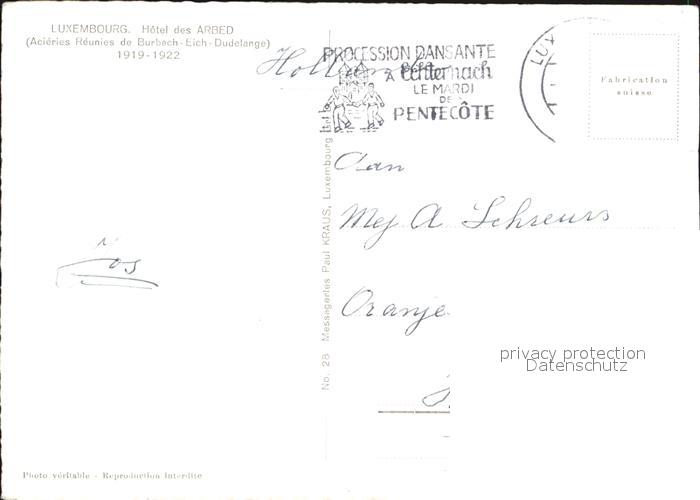 LUXEMBOURG. Hôtel des ARBED
(Aciéries Réunies de Burbach-Eich-Dudelange)
1919-1922
Holland
PROCESSION DANSANTE
A Echternach
LE MARDI
DE
PENTECÔTE
LUX
Fabrication
suisse
Aan
Mej A Schreurs
Oranje
Jos
No. 28 Messageries Paul KRAUS, Luxembourg
privacy protection
Datenschutz
Photo véritable - Reproduction interdite